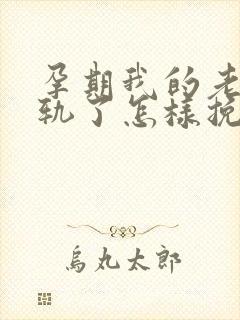 孕期我的老
轨了怎樣挽
烏丸太郎